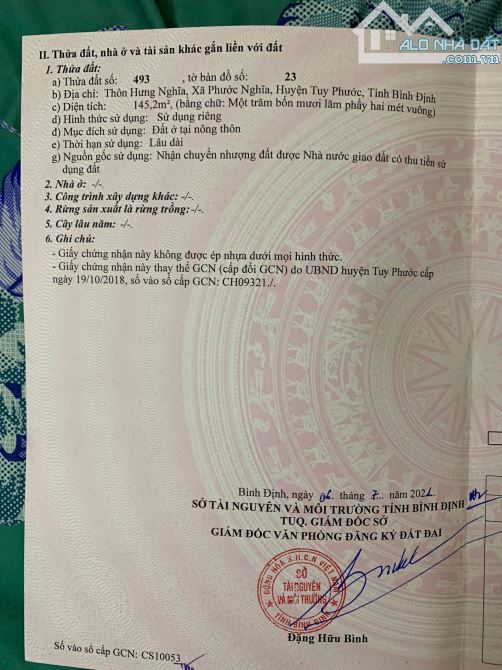 ALO NHÀ ĐẤT
.com.vn
II. Thửa đất, nhà ở và tài sản khác gắn liền với đất
1. Thửa đất:
a) Thửa đất số: 493 , tờ bản đồ số: 23
b) Địa chỉ: Thôn Hưng Nghĩa, Xã Phước Nghĩa, Huyện Tuy Phước, Tỉnh Bình Định
c) Diện tích: 145,2m², (bằng chữ: Một trăm bốn mươi lăm phẩy hai mét vuông)
d) Hình thức sử dụng: Sử dụng riêng
đ) Mục đích sử dụng: Đất ở tại nông thôn
e) Thời hạn sử dụng: Lâu dài
g) Nguồn gốc sử dụng: Nhận chuyển nhượng đất được Nhà nước giao đất có thu tiền sử
dụng đất
2. Nhà ở: -/-.
3. Công trình xây dựng khác: -/-.
4. Rừng sản xuất là rừng trồng:-/-.
5. Cây lâu năm: -/-.
6. Ghi chú:
- Giấy chứng nhận này không được ép nhựa dưới mọi hình thức.
- Giấy chứng nhận này thay thế GCN (cấp đổi GCN) do UBND huyện Tuy Phước cấp
ngày 19/10/2018, số vào sổ cấp GCN: CH09321./.
Bình Định, ngày 06 tháng 7 năm 2021
SỞ TÀI NGUYÊN VÀ MÔI TRƯỜNG TỈNH BÌNH ĐỊNH
TUQ. GIÁM ĐỐC SỞ
GIÁM ĐỐC VĂN PHÒNG ĐĂNG KÝ ĐẤT ĐAI
CỘNG HÒA X.H.C.N VIỆT NAM
SỞ
TÀI NGUYÊN
VÀ MÔI TRƯỜNG
TỈNH BÌNH ĐỊNH
Đặng Hữu Bình
Số vào sổ cấp GCN: CS10053